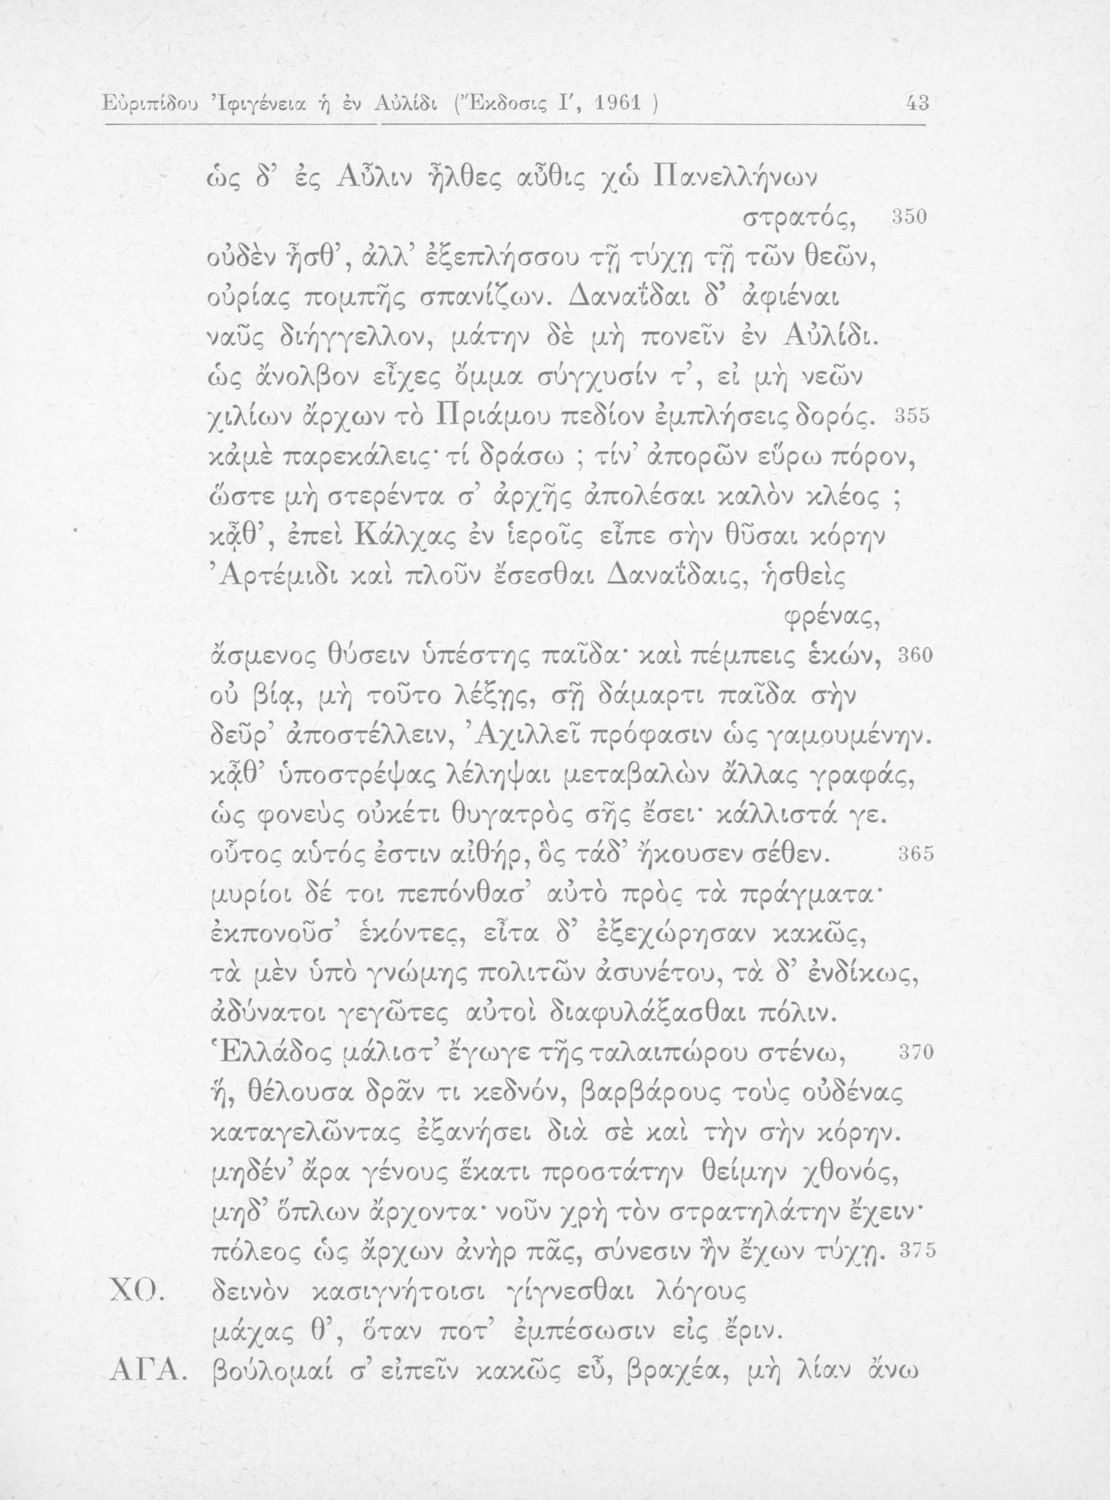 Εὐριπίδου Ἰφιγένεια ἡ ἐν Αὐλίδι (Ἔκδοσις Ι′, 1961 ) 43
ὡς δ’ ἐς Αὖλιν ἦλθες αὖθις χὠ Πανελλήνων
στρατός, 350
οὐδὲν ἦσθ’, ἀλλ’ ἐξεπλήσσου τῇ τύχῃ τῇ τῶν θεῶν,
οὐρίας πομπῆς σπανίζων. Δαναΐδαι δ’ ἀφιέναι
ναῦς διήγγελλον, μάτην δὲ μὴ πονεῖν ἐν Αὐλίδι.
ὡς ἄνολβον εἶχες ὄμμα σύγχυσίν τ’, εἰ μὴ νεῶν
χιλίων ἄρχων τὸ Πριάμου πεδίον ἐμπλήσεις δορός. 355
κἀμὲ παρεκάλεις· τί δράσω ; τίν’ ἀπορῶν εὕρω πόρον,
ὥστε μὴ στερέντα σ’ ἀρχῆς ἀπολέσαι καλὸν κλέος ;
κᾆθ’, ἐπεὶ Κάλχας ἐν ἱεροῖς εἶπε σὴν θῦσαι κόρην
Ἀρτέμιδι καὶ πλοῦν ἔσεσθαι Δαναΐδαις, ἡσθεὶς
φρένας,
ἄσμενος θύσειν ὑπέστης παῖδα· καὶ πέμπεις ἑκών, 360
οὐ βίᾳ, μὴ τοῦτο λέξῃς, σῇ δάμαρτι παῖδα σὴν
δεῦρ’ ἀποστέλλειν, Ἀχιλλεῖ πρόφασιν ὡς γαμουμένην.
κᾆθ’ ὑποστρέψας λέληψαι μεταβαλὼν ἄλλας γραφάς,
ὡς φονεὺς οὐκέτι θυγατρὸς σῆς ἔσει· κάλλιστά γε.
οὗτος αὑτός ἐστιν αἰθήρ, ὃς τάδ’ ἤκουσεν σέθεν. 365
μυρίοι δέ τοι πεπόνθασ’ αὐτὸ πρὸς τὰ πράγματα·
ἐκπονοῦσ’ ἑκόντες, εἶτα δ’ ἐξεχώρησαν κακῶς,
τὰ μὲν ὑπὸ γνώμης πολιτῶν ἀσυνέτου, τὰ δ’ ἐνδίκως,
ἀδύνατοι γεγῶτες αὐτοὶ διαφυλάξασθαι πόλιν.
Ἑλλάδος μάλιστ’ ἔγωγε τῆς ταλαιπώρου στένω, 370
ἥ, θέλουσα δρᾶν τι κεδνόν, βαρβάρους τοὺς οὐδένας
καταγελῶντας ἐξανήσει διὰ σὲ καὶ τὴν σὴν κόρην.
μηδέν’ ἄρα γένους ἕκατι προστάτην θείμην χθονός,
μηδ’ ὅπλων ἄρχοντα· νοῦν χρὴ τὸν στρατηλάτην ἔχειν·
πόλεος ὡς ἄρχων ἀνὴρ πᾶς, σύνεσιν ἢν ἔχων τύχῃ. 375
ΧΟ. δεινὸν κασιγνήτοισι γίγνεσθαι λόγους
μάχας θ’, ὅταν ποτ’ ἐμπέσωσιν εἰς ἔριν.
ΑΓΑ. βούλομαί σ’ εἰπεῖν κακῶς εὖ, βραχέα, μὴ λίαν ἄνω